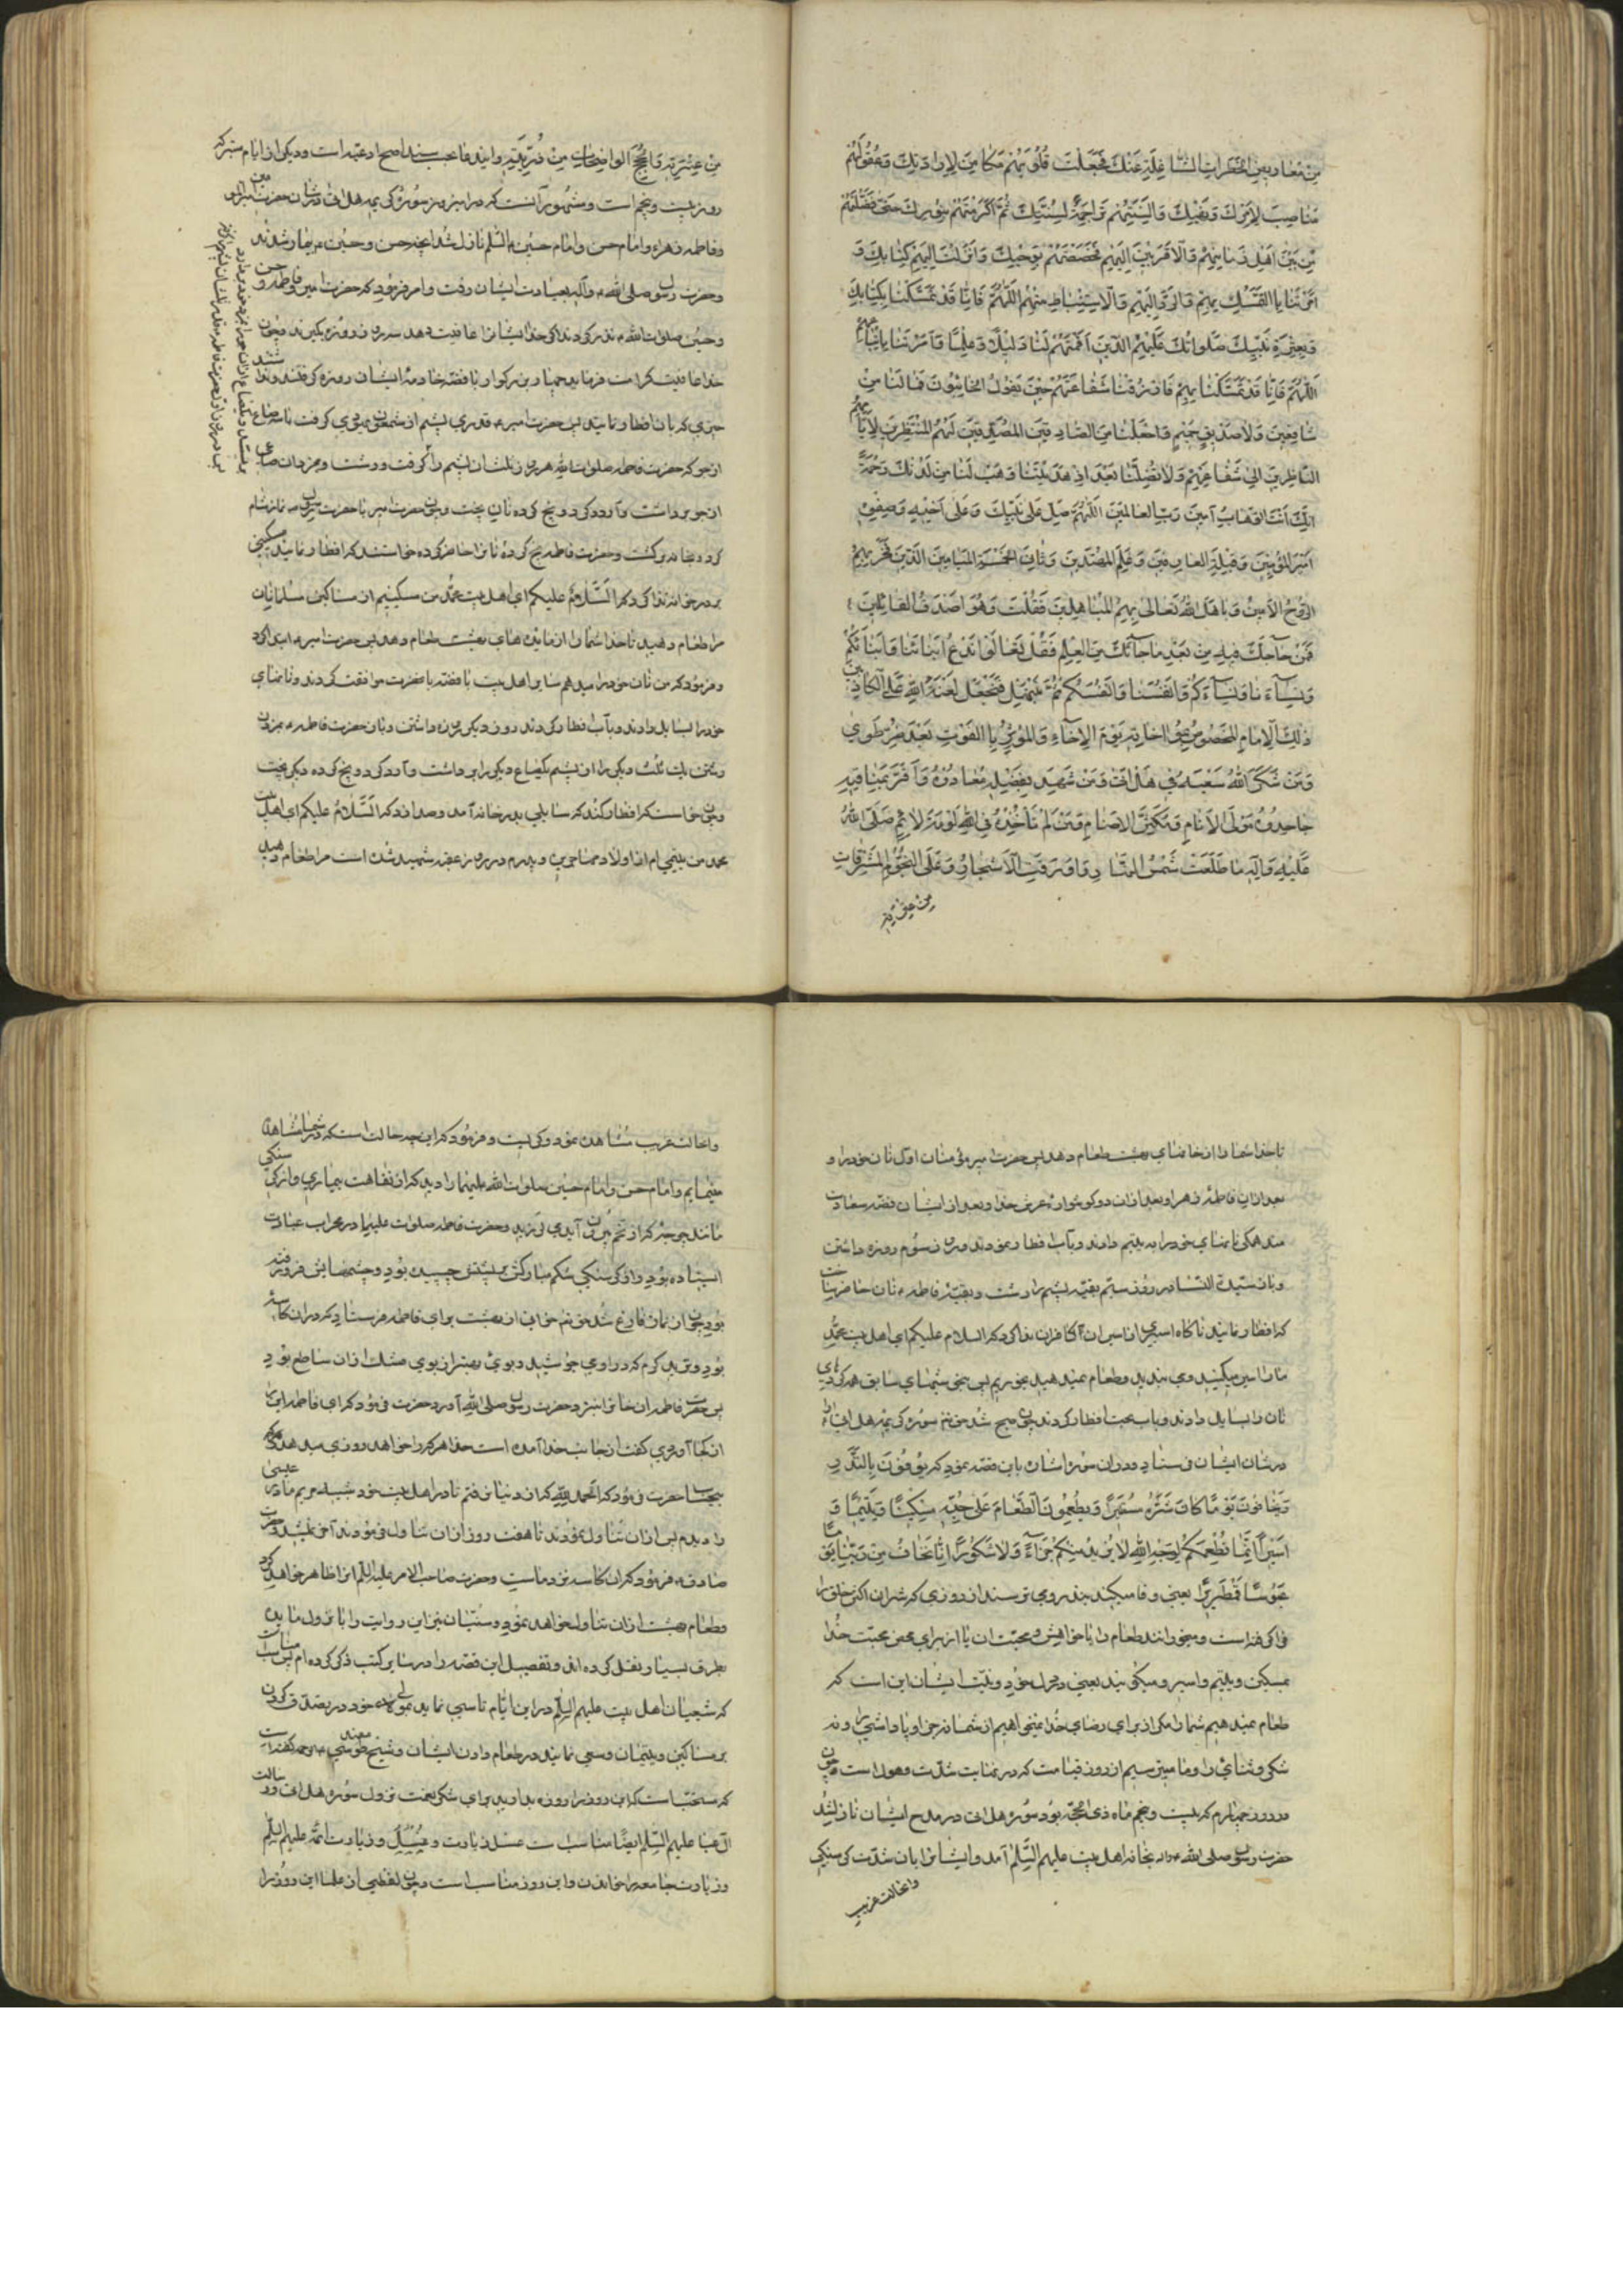 مِنْ مَعَاريضِ الخَطَراتِ الشّاغِلَةِ عَنْكَ فَجَعَلْتَ قُلُوبَهُمْ مَكَامِنَ لِاِرادَتِكَ وَعُقُولَهُمْ
مَنَاصِبَ لِاَمْرِكَ وَنَهْيِكَ وَاَلْسِنَتَهُمْ تَراجِمَةً لِسُنَّتِكَ ثُمَّ اَكْرَمْتَهُمْ بِنُورِكَ حَتّى فَضَّلْتَهُمْ
مِنْ بَيْنِ اَهْلِ زَمَانِهِمْ وَالْاَقْرَبِينَ اِلَيْهِمْ فَخَصَصْتَهُمْ بِوَحْيِكَ وَاَنْزَلْتَ اِلَيْهِمْ كِتَابَكَ وَ
اَمَرْتَنا بِالتَّمَسُّكِ بِهِمْ وَالرَّدِّ اِلَيْهِمْ وَالْاِسْتِنْبَاطِ مِنْهُمْ اَللّهُمَّ فَاِنّا قَدْ تَمَسَّكْنَا بِكِتَابِكَ
وَبِعِتْرَةِ نَبِيِّكَ صَلَواتُكَ عَلَيْهِمُ الَّذِينَ اَقَمْتَهُمْ لَنَا دَلِيلاً وَعَلَمًا وَاَمَرْتَنا بِاِتِّبَاعِهِمْ
اَللّهُمَّ فَاِنّا قَدْ تَمَسَّكْنَا بِهِمْ فَارْزُقْنَا شَفَاعَتَهُمْ حِينَ يَقُولُ الخَائِبُونَ فَمَا لَنَا مِنْ
شَافِعِينَ وَلا صَدِيقٍ حَمِيمٍ وَاجْعَلْنَا مِنَ الصَّادِقِينَ المُصَدِّقِينَ لَهُمُ المُنْتَظِرِينَ لِاَيّامِهِمْ
النّاظِرِينَ اِلى شَفَاعَتِهِمْ وَلا تُضِلَّنَا بَعْدَ اِذْ هَدَيْتَنَا وَهَبْ لَنَا مِنْ لَدُنْكَ رَحْمَةً
اِنَّكَ اَنْتَ الوَهّابُ آمينَ رَبَّ العَالَمِينَ اَللّهُمَّ صَلِّ عَلى نَبِيِّكَ وَعَلى اَخِيهِ وَصِفِيِّهِ
اَمِيرِ المُؤْمِنِينَ وَقِبْلَةِ العَارِفِينَ وَعَلَمِ المُهْتَدِينَ وَثَانِيَ الخَمْسَةِ المَيَامِينَ الَّذِينَ فَخَرَ بِهِمُ
الرُّوحُ الاَمِينُ وَبَاهَلَ اللهُ تَعَالى بِهِمُ المُبَاهِلِينَ فَقُلْتَ وَهُوَ اَصْدَقُ القَائِلِينَ
فَمَنْ حَاجَّكَ فِيهِ مِنْ بَعْدِ مَا جَائَكَ مِنَ العِلْمِ فَقُلْ تَعَالَوْا نَدْعُ اَبْنَائَنَا وَاَبْنَائَكُمْ
وَنِسَآءَنَا وَنِسَآءَكُمْ وَاَنْفُسَنَا وَاَنْفُسَكُمْ ثُمَّ نَبْتَهِلْ فَنَجْعَلْ لَعْنَةَ اللهِ عَلَى الكَاذِبِينَ
ذلِكَ الاِمَامِ المَخْصُوصِ بِمُؤَاخَاتِهِ يَوْمَ الاِخَآءِ وَالمُؤْثِرِ بِالقُوتِ بَعْدَ ضُرِّ طَوِي
وَمَنْ شَكَرَ اللهُ سَعْيَهُ فِي هَلْ اَتى وَمَنْ شَهِدَ بِفَضْلِهِ مُعَادُوهُ وَاَقَرَّ بِمَنَاقِبِهِ
جَاحِدُوهُ مَوْلَى الاَنَامِ وَمُكَسِّرِ الاَصْنَامِ وَمَنْ لَمْ تَأْخُذْهُ فِي اللهِ لَوْمَةُ لائِمٍ صَلَّى اللهُ
عَلَيْهِ وَآلِهِ مَا طَلَعَتْ شَمْسُ النَّهَارِ وَاَوْرَقَتِ الاَشْجَارُ وَعَلَى النُّجُومِ المُشْرِقَاتِ
مِنْ عِتْرَتِهِ
مِنْ عِتْرَتِهِ وَالحُجَجِ الوَاضِحَاتِ مِنْ ذُرِّيَّتِهِ واین دعا بحسب سند اصح ادعیه است ودیکر از ایام متبرکه
روز بیست وپنجم است ومشهور آنست که در این روز سوره کریمه هل اتی در شان حضرت امیر المؤمنین
وفاطمه زهراء وامام حسن وامام حسین ع السّلم نازل شد انچنه حسن وحسین ع بیمار شدند
وحضرت رسول صلی الله ع وآله بعیادت ایشان رفت وامر فرمود که حضرت امیر وفاطمه وحسن
وحسین صلوات الله ع نذر کردند اکر خدا ایشانرا عافیت دهد سه روز روزه بکیرند وچون
خدا عافیت کرامت فرمود ان چهار بزرکوار با فضّه خادمه ایشان روزه کرفتند ونداشتند
چیزی که بان افطار نمایند پس حضرت امیر ع قدری پشم از شمعون یهودی کرفت با سه صاع
از جو که حضرت فاطمه صلوات الله هر روز ثلث ان پشم را کرفت ورشت وهر روز از ان صاعی
از جو برداشت وآرد کرد وپنج کرده نان پخت وچون حضرت امیر با حضرت رسول ص نماز شام
کرد وبخانه برکشت وحضرت فاطمه پنج کرده نانرا حاضر کرده خواستند که افطار نمایند مسکینی
بر در خانه ندا کرد که السّلام علیکم ای اهل بیت محمّد من مسکینم از مساکین مسلمانان
مرا طعام دهید تا خدا شما را از مائدهای بهشت طعام دهد پس حضرت امیر ع ابتدا کرد
وفرمود که من نان خود را میدهم سایر اهل بیت با فضّه با حضرت موافقت کردند ونانهای
خود را بسایل دادند وبآب افطار کردند روز دیکر روزه داشتند وباز حضرت فاطمه ع بمزد
رشتن یک ثلث دیکر را از پشم یکصاع دیکر را برداشت وآرد کرد وپنج کرده دیکر پخت
وچون خواست که افطار کنند که سایلی بدر خانه آمد وصدا زد که السّلام علیکم ای اهل بیت
محمد من یتیمی ام از اولاد مهاجرین وپدرم در روز عقبه شهید شده است مرا طعام دهید
تا خدا شما را از خانهای بهشت طعام دهد پس حضرت امیر مؤمنان اول نان خود را و
بعد از ان فاطمه زهرا وبعد از ان دو کوشواره عرش خدا وبعد از ایشان فضّه سعادت
مند همکی نانهای خود را به یتیم دادند وبآب افطار نمودند وروز سوم روزه داشتند
وباز سیّدة النّساء در روز سیّم بقیّه پشم را رشت وبقیّه فاطمه ع نان حاضر ساخت
که افطار نمایند ناکاه اسیری از اسیران کافران ندا کرد که السلام علیکم ای اهل بیت محمّد
ما را اسیر میکنید ومی بندید وطعام نمیدهید بخوریم پس بنحو شبهای سابق همه کردهای
نان را بسایل دادند وبآب بحت افطار کردند چون صبح شد حق تعم سوره کریمه هل اتی را
در شان ایشان فرستاد ودر ان سوره اشاره باین قصّه نمود که یُوفُونَ بِالنَّذْرِ
وَیَخَافُونَ یَوْمًا کَانَ شَرُّهُ مُسْتَطِیرًا وَیُطْعِمُونَ الطَّعَامَ عَلى حُبِّهِ مِسْكِینًا وَیَتِیمًا وَ
اَسِیرًا اِنَّمَا نُطْعِمُكُمْ لِوَجْهِ اللهِ لا نُرِیدُ مِنْكُمْ جَزَآءً وَلا شُكُورًا اِنّا نَخَافُ مِنْ رَبِّنَا یَوْمًا
عَبُوسًا قَمْطَرِیرًا یعنی وفا میکنند بنذر ومی ترسند از روزی که شر ان اکثر خلق را
فرا کرفته است ومیخورانند طعام را با خواهش ومحبّت ان یا از برای محض محبّت خدا
بمسکین ویتیم واسیر ومیکویند یعنی در دل خود ونیّت ایشان این است که
طعام نمیدهیم شما را مکر از برای رضای خُدا نمیخواهیم از شما نه جزا وپاداشی را ونه
شکر وثنائی را وما میترسیم از روز قیامت که در نهایت شدّت وهول است وچون
در روز چهارم که بیست وپنجم ماه ذی الحجّه بود سُوره هل اتی در مدح ایشان نازل شد
حضرت رسول صلی الله علیه وآله بخانه اهل بیت علیهم السّلم آمد وایشانرا بان شدّت کرسنکی
واحالت غریب
واحالت غریب مشاهده نمود وکریست وفرمود که این چه حالت است که در شما مشاهده
مینمایم وامام حسن وامام حسین صلوات الله علیهما را دید که از نقاهت بیماری واز کرسنکی
مانند جوجه که از تخم بیرون آید می لرزید وحضرت فاطمه صلوات علیها در محراب عبادت
ایستاده بود واز کرسنکی شکم مبارکش بر پشتش چسبیده بود وچشمهایش فرو رفته
بود چون از نماز فارغ شد حق تعم خوانی از بهشت برای فاطمه فرستاد که در ان کاسه
بود وثرید کرم که در او می جوشید وبوئی بهتر از بوی مشک از ان ساطع بود
پس حضرت فاطمه ان خانرا نزد حضرت رسول صلی الله آورد حضرت فرمود که ای فاطمه این را
از کجا آوردی کفت از جانب خدا آمده است خدا هر که را خواهد روزی میدهد
بیحساب حضرت فرمود که الحمد لله که از دنیا نرفتم تا در اهل بیت خود شبیه مریم مادر عیسی
را دیدم پس از ان تناول نمودند تا هفت روز از ان تناول فرمودند آخر نمیشد وحضرت
صادق ع فرمود که ان کاسه نزد ماست وحضرت صاحب الامر علیه السّلم انرا ظاهر خواهد کرد
وطعام بهشت از ان تناول خواهد نمود وسنّیان نیز این روایت را با نزول مایده
بطرق بسیار نقل کرده اند وتفصیل این قصّه را در سایر کتب ذکر کرده ام پس مناسب است
که شیعیان اهل بیت علیهم السّلم در این ایّام تاسی نمایند بموالی خود در تصدّق کردن
بر مساکین ویتیمان وسعی نمایند در طعام دادن ایشان وشیخ طوسی
که سنّت است که این روز را روزه بدارند برای شکر نعمت نزول سوره هل اتی در
آل عبا علیهم السّلم ایضًا مناسب است غسل زیارت وزیارت ائمّه علیهم السّلم
وزیارت جامعه را خواندن در این روز مناسب است وچون بعضی از علما این روز را